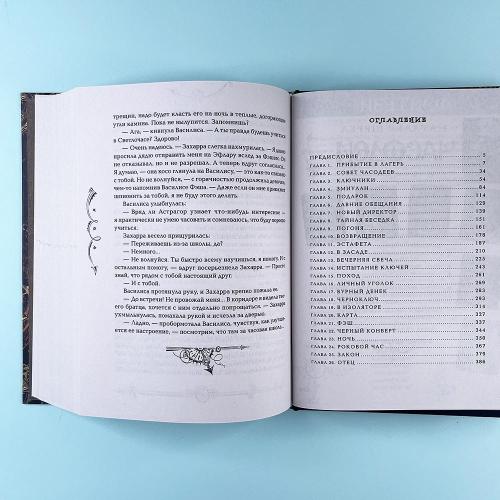 трещин, надо будет класть его на ночь в теплые, догорающие
угли камина. Пока не вылупится. Запомнишь?
— Ага, — кивнула Василиса. — А ты правда будешь учиться
в Светлочасе? Здорово!
— Очень надеюсь. — Захарра слегка нахмурилась. — Я давно
просила дядю отправить меня на Эфлару вслед за Фэшем. Он
не отказывал, но и не разрешал. А теперь вдруг согласился.
Я думаю, — она косо глянула на Василису, — это как-то связано
с тобой. Но не волнуйся, — с горячностью продолжила девочка,
чем-то напомнив Василисе Фэша. — Даже если они мне прикажут
шпионить за тобой, я не буду этого делать.
Василиса улыбнулась:
— Вряд ли Астрагор узнает что-нибудь интересное —
я практически не умею часовать и сомневаюсь, что буду хорошо
учиться.
Захарра весело прищурилась:
— Переживаешь из-за школы, да?
— Немного...
— Не волнуйся. Ты быстро всему научишься, я помогу. И
остальным помогу, — вдруг посерьезнела Захарра. — Просто
знай, что рядом с тобой настоящий друг.
— И с тобой.
Василиса протянула руку, и Захарра крепко пожала ее.
— До встречи! Не провожай меня... В коридоре я видела тво-
его братца, хочется с ним отдельно попрощаться. — Захарра
ухмыльнулась, помахала рукой и исчезла за дверью.
— Ладно, — пробормотала Василиса, чувствуя, как улучша-
ется ее настроение, — посмотрим, что там за часовая школа...
ОГЛАВЛЕНИЕ
ПРЕДИСЛОВИЕ 5
ГЛАВА 1. ПРИБЫТИЕ В ЛАГЕРЬ 7
ГЛАВА 2. СОВЕТ ЧАСОДЕЕВ 34
ГЛАВА 3. КЛЮЧНИКИ 54
ГЛАВА 4. ЗМИУЛАН 84
ГЛАВА 5. ПОДАРОК
ГЛАВА 6. ДАВНИЕ ОБЕЩАНИЯ
ГЛАВА 7. НОВЫЙ ДИРЕКТОР
ГЛАВА 8. ТАЙНАЯ БЕСЕДКА 151
ГЛАВА 9. ПОГОНЯ 161
ГЛАВА 10. ВОЗВРАЩЕНИЕ 178
ГЛАВА 11. ЭСТАФЕТА 187
ГЛАВА 12. В ЗАСАДЕ
ГЛАВА 13. ВЕЧЕРНЯЯ СВЕЧА
ГЛАВА 14. ИСПЫТАНИЕ КЛЮЧЕЙ
ГЛАВА 15. ПОХОД
ГЛАВА 16. ЛИЧНЫЙ УГОЛОК 260
ГЛАВА 17. БУРНЫЙ ДЕНЕК 263
ГЛАВА 18. ЧЕРНОКЛЮЧ 293
ГЛАВА 19. В ИЗОЛЯТОРЕ
ГЛАВА 20. КАРТА
ГЛАВА 21. ФЭШ
ГЛАВА 22. ЧЕРНЫЙ КОНВЕРТ 344
ГЛАВА 23. НОЧЬ 350
ГЛАВА 24. РОКОВОЙ ЧАС 367
ГЛАВА 25. ЗАКОН 379
ГЛАВА 26. ОТЕЦ 386